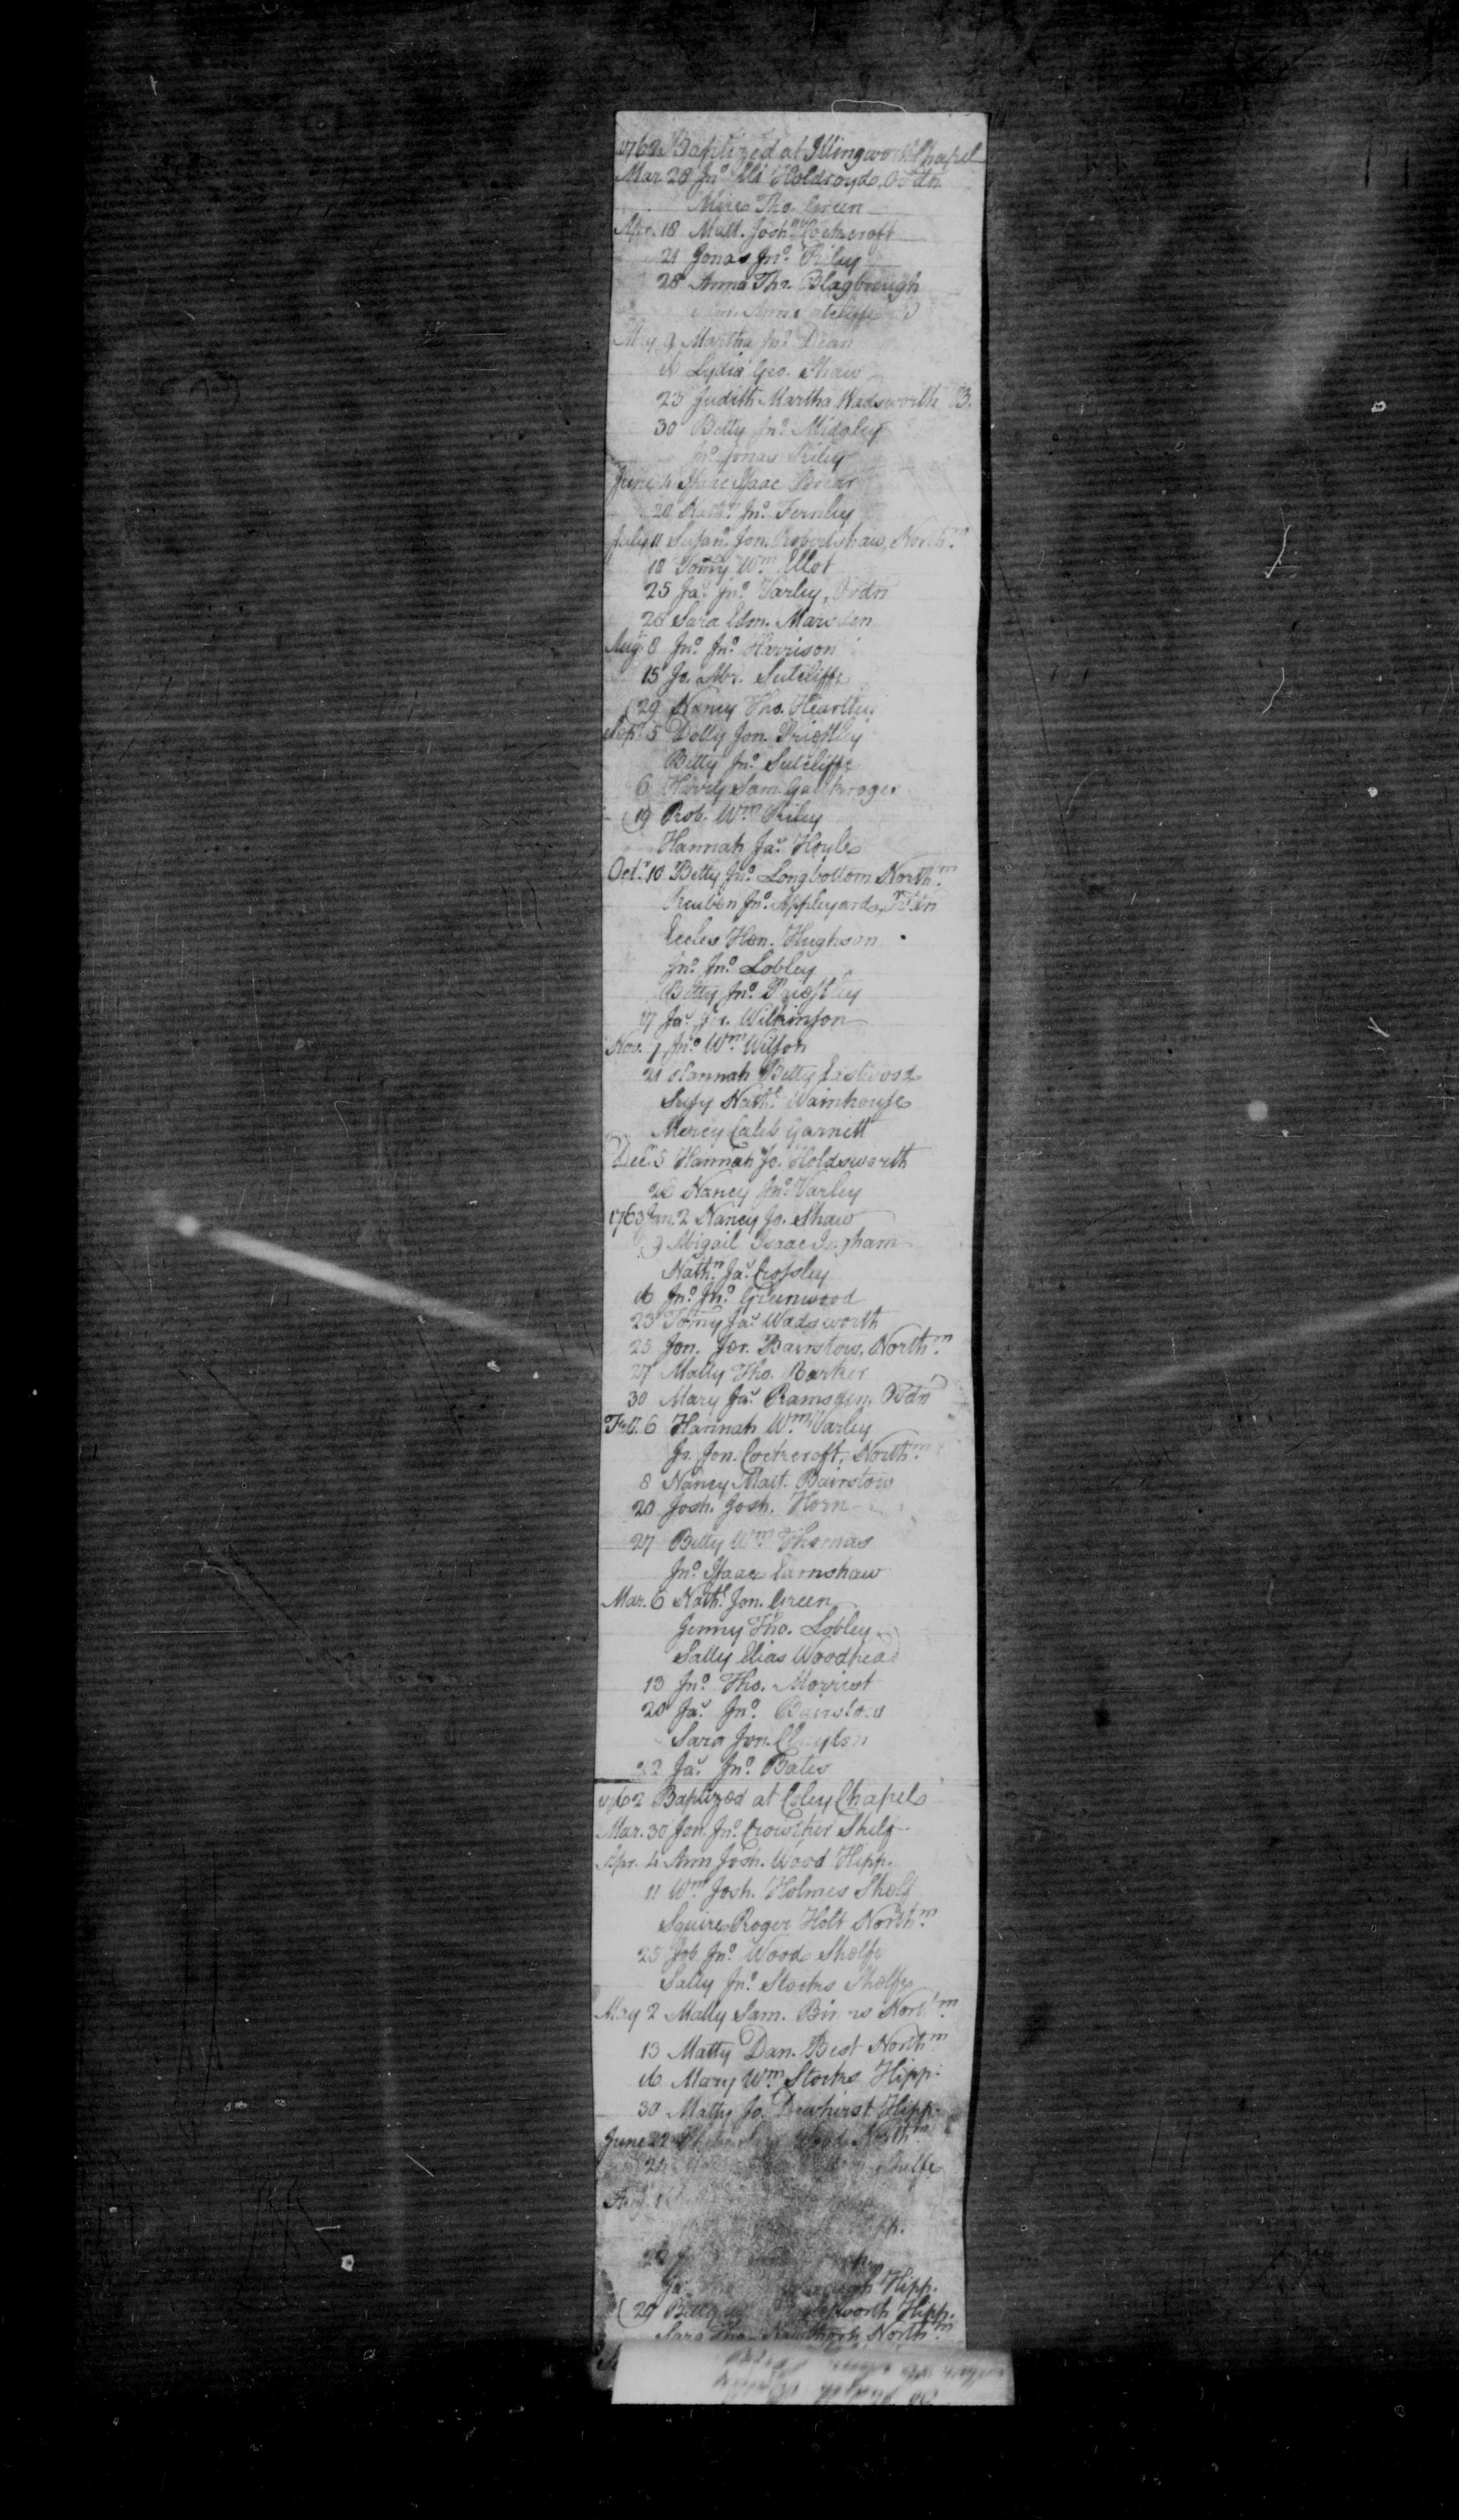 1762 Baptized at Illingworth Chapel
Mar. 28 Jnº Eli Holdroyde, Ovdn
Tho. Green
Apr. 18 Matt. Joshª Cockcroft
21 Jonas Jnº Riley
28 Anna Tho. Blagbrough
May 9 Martha Jnº Dean
16 Lydia Geo. Shaw
23 Judith Martha Wadsworth B.
30 Betty Jnº Midgley
Jnº Jonas Riley
June 4 Isaac Isaac Briar
20 Jnº Fernley
July 11 Susanª Jon. Robertshaw, Northᵐ
18 Tomy Wᵐ Ellot
25 Jaˢ Jnº Varley, Ovdn
28 Sara Edm. Marsden
Augᵗ 8 Jnº Jnº Harrison
15 Jo. Abr. Sutcliffe
29 Nancy Tho. Heartley
Sepʳ 5 Dolly Jon. Priestley
Betty Jnº Sutcliffe
6 Sam. Gaukroger
19 Rob. Wᵐ Riley
Hannah Jaˢ Hoyle
Octʳ 10 Betty Jnº Longbottom Northᵐ
Reuben Jnº Appleyard,
Eccles Hen. Hughson
Jnº Jnº Lobley
Betty Jnº Priestley
17 Jaˢ Wilkinson
Nov. 7 Jnº Wᵐ Wilson
21 Hannah Betty Eastwood
Susy Nathˡ Wainhouse
Mercy Caleb Garnett
Decʳ 5 Hannah Jo. Holdsworth
26 Nancy Jnº Varley
1763 Jan. 2 Nancy Jo. Shaw
9 Abigail Isaac Ingham
Nathⁿ Jaˢ Crossley
16 Jnº Jnº Greenwood
23 Tomy Jaˢ Wadsworth
25 Jon. Jer. Bairstow, Northᵐ
27 Mally Tho. Barker
30 Mary Jaˢ Ramsden, Ovdn
Feb. 6 Hannah Wᵐ Varley
Jo. Jon. Cockcroft, Northᵐ
8 Nancy Matt. Bairstow
20 Josh. Josh. Horn
27 Betty Wᵐ Thomas
Jnº Isaac Earnshaw
Mar. 6 Nathˡ Jon. Green
Jenny Tho. Lobley
Sally Elias Woodhead
13 Jnº Tho. Morriet
20 Jaˢ Jnº Bairstow
Sara Jon. Clayton
22 Jaˢ Jnº Bates
1762 Baptized at Coley Chapel
Mar. 30 Jon. Jnº Crowther Shelf
Apr. 4 Ann Josh. Wood Hipp.
11 Wᵐ Josh. Holmes Shelf
Squire Roger Holt Northᵐ
25 Job Jnº Wood Shelfe
Sally Jnº Stocks Shelfe
May 2 Mally Sam. Northᵐ
13 Matty Dan. Best Northᵐ
16 Mary Wᵐ Stocks Hipp.
30 Matty Jo. Dewhirst Hipp.
June 22 Northᵐ
Shelfe
Jaˢ Hipp.
29 Betty Hipp.
Sara Tho. Northᵐ